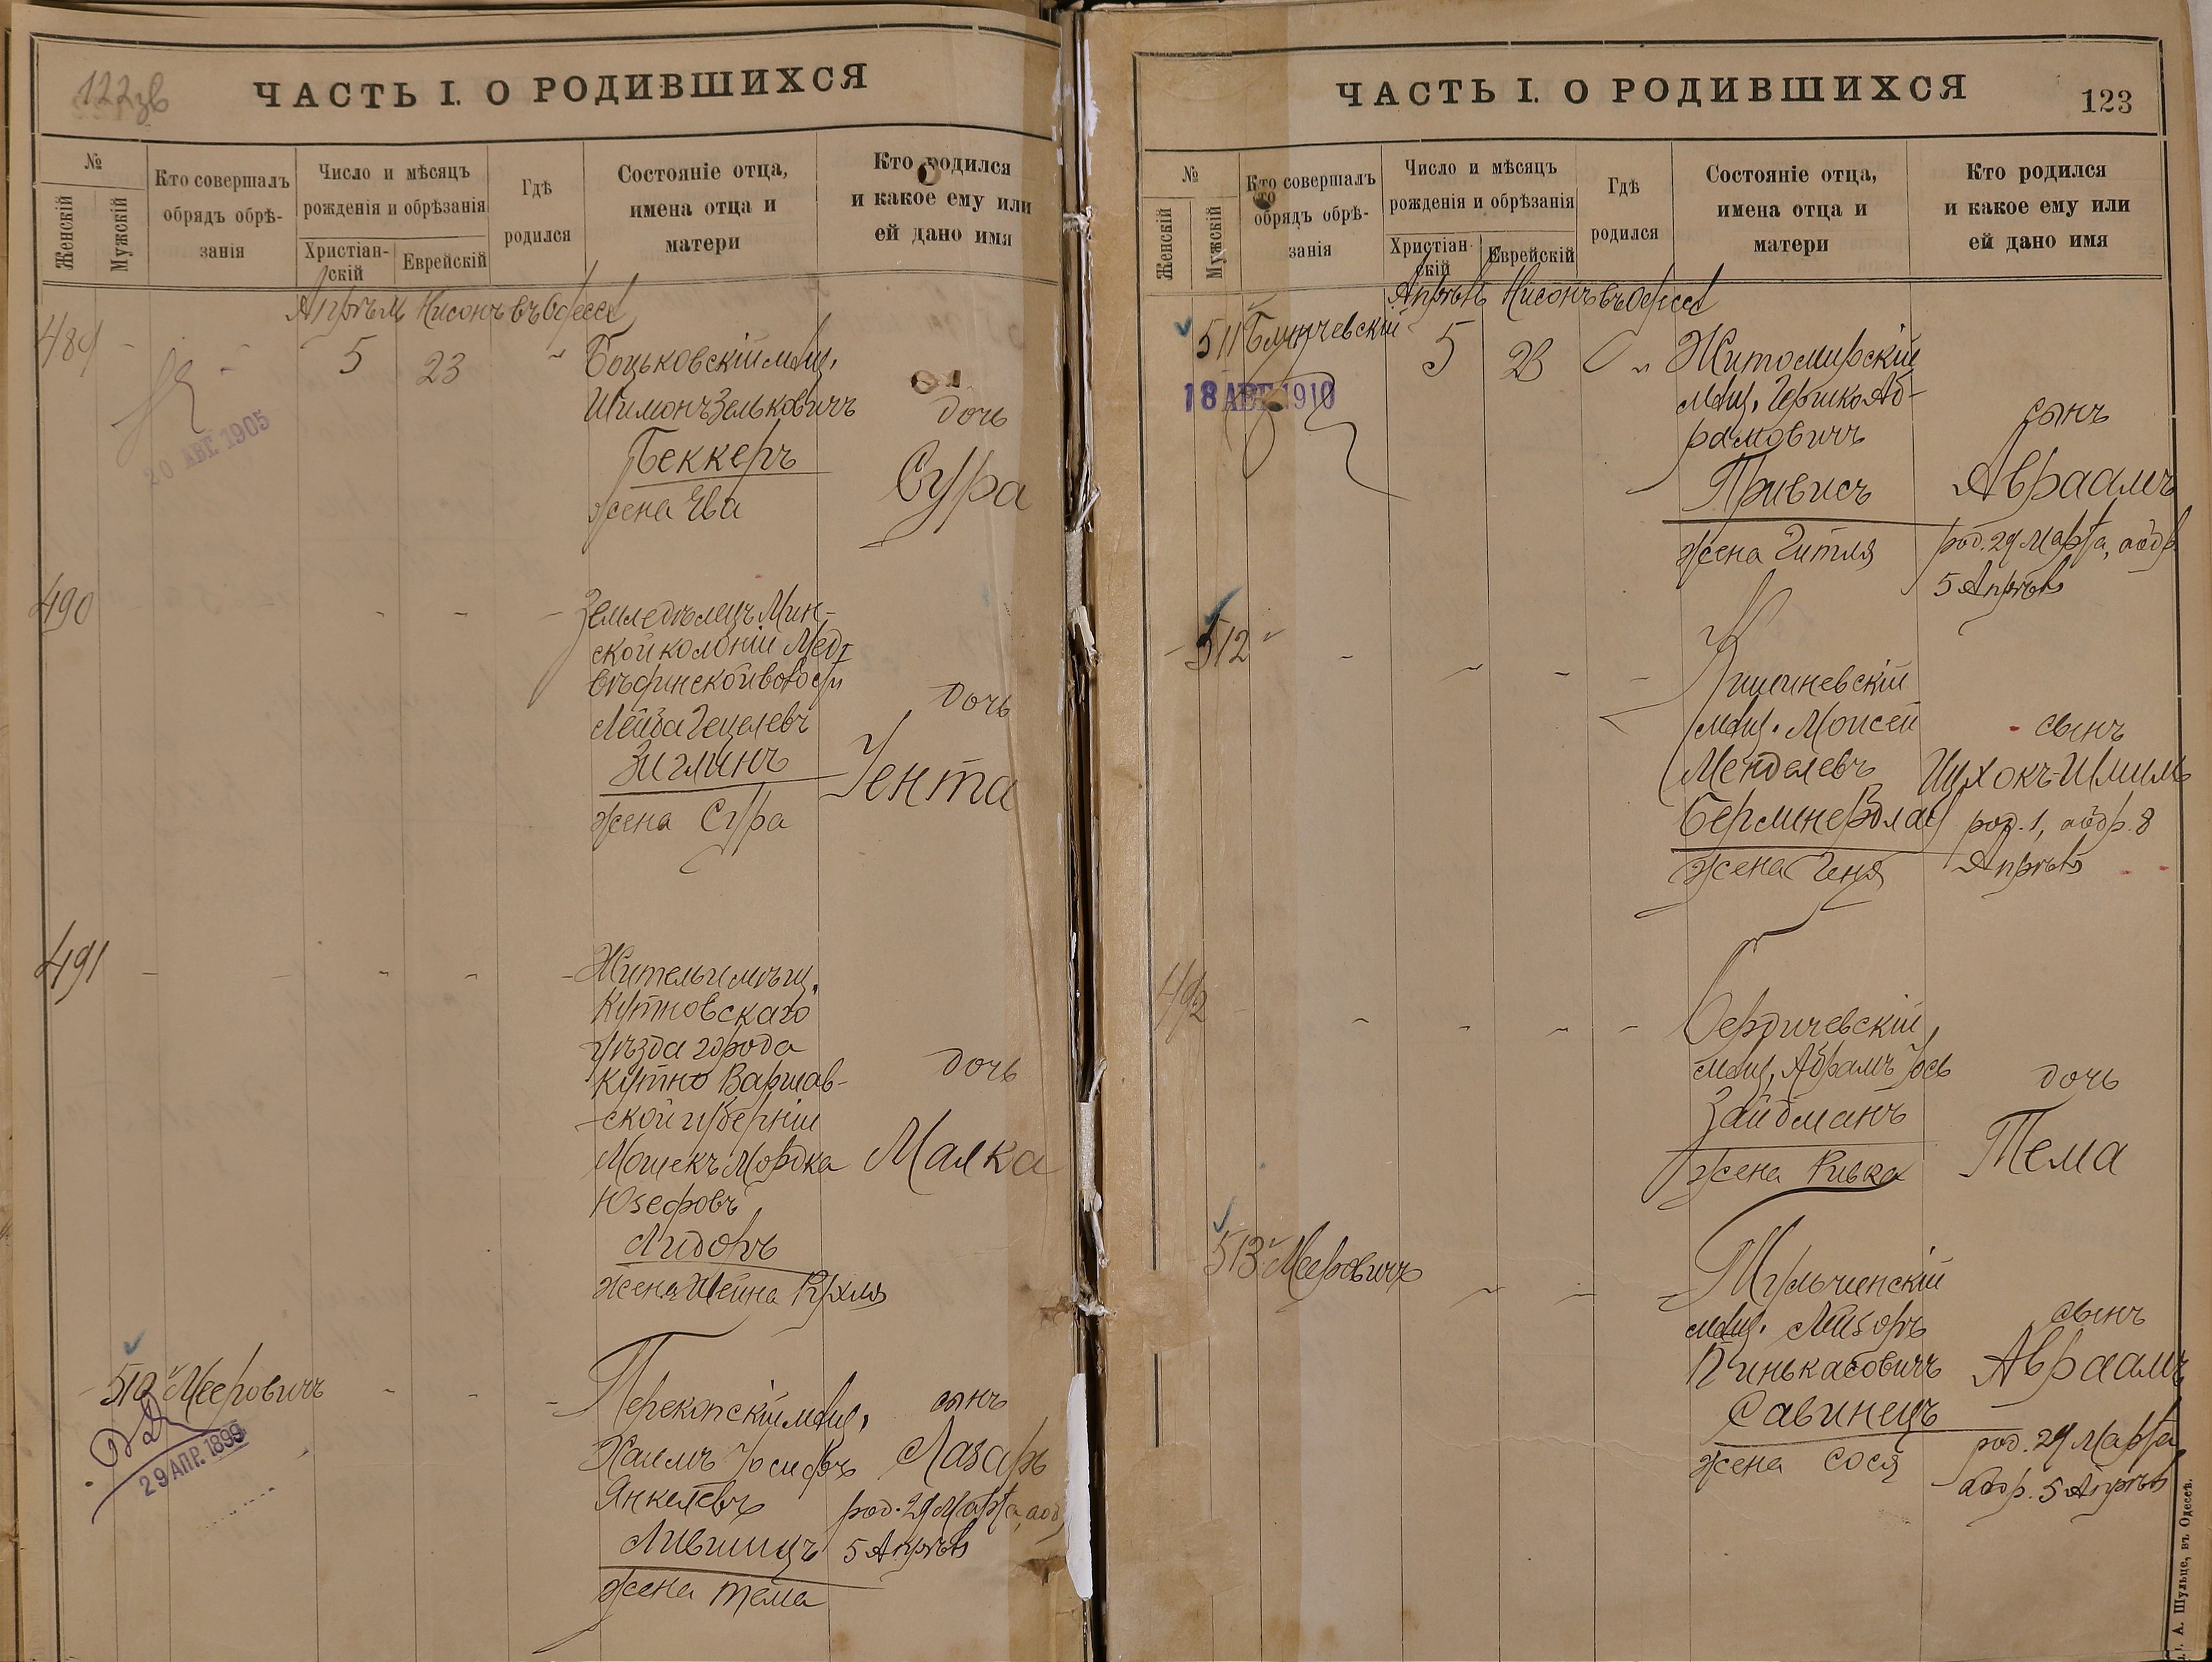 122зв
ЧАСТЬ I. О РОДИВШИХСЯ
№
Женскій
Мужскій
Кто совершалъ
обрядъ обрѣ-
занія
Число и мѣсяцъ
рожденія и обрѣзанія
Христіан-
скій
Еврейскій
Гдѣ
родился
Состояніе отца,
имена отца и
матери
Кто родился
и какое ему или
ей дано имя
Апрѣль Нисонъ въ Одессѣ
489
5 23
20 АВГ. 1905
Боцьковскій мѣщ.
Шимонъ Зельковичъ
Беккеръ
жена Ева
дочь
Сура
490
Земледѣлецъ Мин-
ской колоніи Мед-
волости
Лейба Гецелевъ
Зиглинъ
жена Сура
дочь
Іента
491
Житель и мѣщ.
Кутновскаго
уѣзда города
Кутно Варшав-
ской губерніи
Мошекъ Мордка
Юзефовъ
Лидоръ
жена Шейна Рухля
дочь
Малка
510 Мееровичъ
29 АПР. 1899
Перекопскій мѣщ.
Хаимъ Іосифъ
Янкелевъ
Лившицъ
жена Тема
сынъ
Лазарь
род. 29 Марта, аод
5 Апрѣля
ЧАСТЬ I. О РОДИВШИХСЯ
123
№
Женскій
Мужскій
Кто совершалъ
обрядъ обрѣ-
занія
Число и мѣсяцъ
рожденія и обрѣзанія
Христіан-
скій
Еврейскій
Гдѣ
родился
Состояніе отца,
имена отца и
матери
Кто родился
и какое ему или
ей дано имя
Апрѣль Нисонъ въ Одессѣ
511 Блинчевскій
5 23
18 АВГ. 1910
Житомирскій
мѣщ. Гершко Аб-
рамовичъ
Привисъ
жена Гитля
сынъ
Авраамъ
род. 29 Марта, аобр
5 Апрѣля
512
Кишиневскій
мѣщ. Моисей
Менделевъ
жена Геня
сынъ
Ицхокъ-Шмиль
род. 1, аобр. 8
Апрѣля
492
Бердичевскій
мѣщ. Абрамъ Іось
Зайдманъ
жена Ривка
дочь
Тема
513 Мееровичъ
Тульчинскій
мѣщ. Лейзоръ
Пинькасовичъ
Савинецъ
жена Сося
сынъ
Авраамъ
род. 29 Марта
аобр. 5 Апрѣля
А. Шульце, въ Одессѣ.